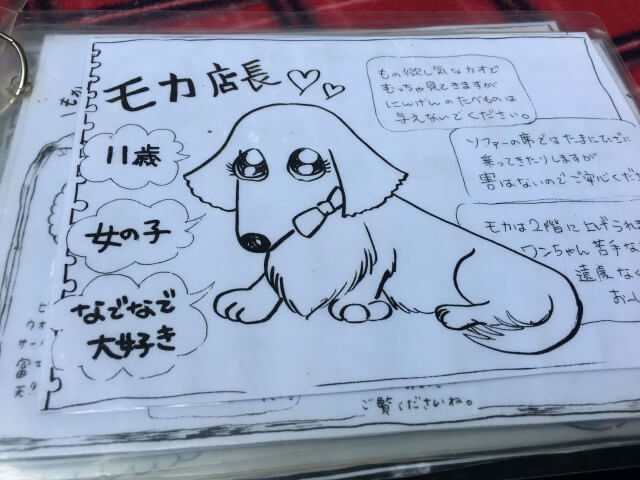 モカ店長
11歳
女の子
なでなで
大好き
もの欲し気なカオで
むっちゃ見てきますが
にんげんのたべものは
与えないでください。
ソファーの席ではたまにひざに
乗ってきたりしますが
害はないのでご安心くださ
モカは2階に上げられ
ワンちゃん苦手な
遠慮な
お〜
ご覧くださいね。